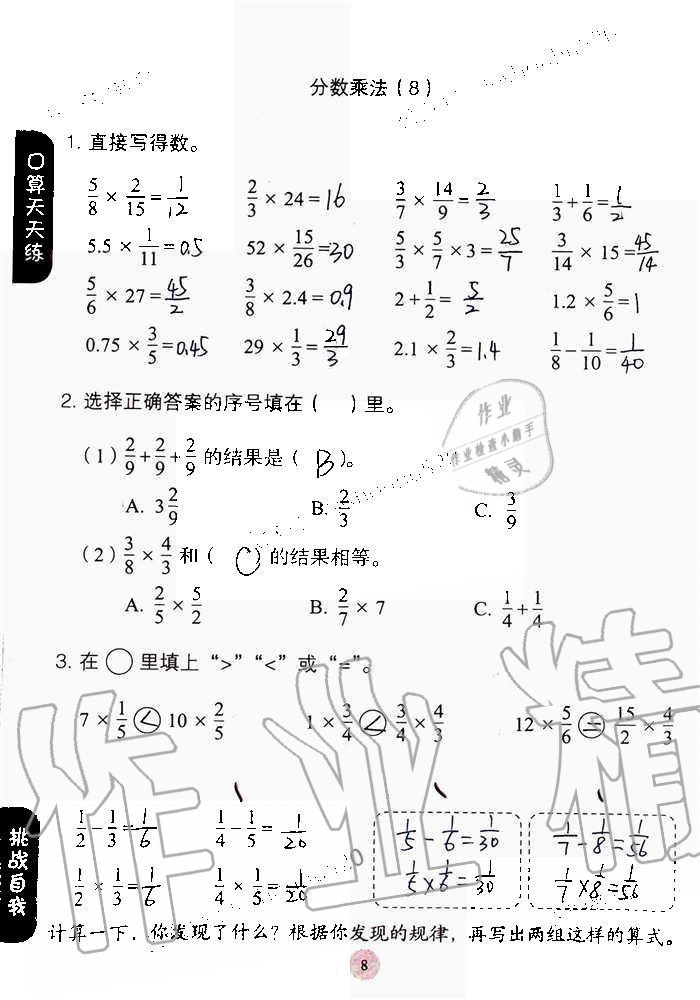 分数乘法(8)
口算天天练
1. 直接写得数。
5/8 × 2/15 = 1/12    2/3 × 24 = 16    3/7 × 14/9 = 2/3    1/3 + 1/6 = 1/2
5.5 × 1/11 = 0.5    52 × 15/26 = 30    5/3 × 5/7 × 3 = 25/7    3/14 × 15 = 45/14
5/6 × 27 = 45/2    3/8 × 2.4 = 0.9    2 + 1/2 = 5/2    1.2 × 5/6 = 1
0.75 × 3/5 = 0.45    29 × 1/3 = 29/3    2.1 × 2/3 = 1.4    1/8 - 1/10 = 1/40
2. 选择正确答案的序号填在( )里。
(1) 2/9 + 2/9 + 2/9 的结果是( B )。
A. 3 2/9    B. 2/3    C. 3/9
(2) 3/8 × 4/3 和( C )的结果相等。
A. 2/5 × 5/2    B. 2/7 × 7    C. 1/4 + 1/4
3. 在○里填上“>”“<”或“=”。
7 × 1/5 < 10 × 2/5    1 × 3/4 < 3/4 × 4/3    12 × 5/6 = 15/2 × 4/3
挑战自我
1/2 - 1/3 = 1/6    1/4 - 1/5 = 1/20    1/5 - 1/6 = 1/30    1/7 - 1/8 = 1/56
1/2 × 1/3 = 1/6    1/4 × 1/5 = 1/20    1/5 × 1/6 = 1/30    1/7 × 1/8 = 1/56
计算一下，你发现了什么？根据你发现的规律，再写出两组这样的算式。
8
作业
作业检查小助手
精灵
作业精